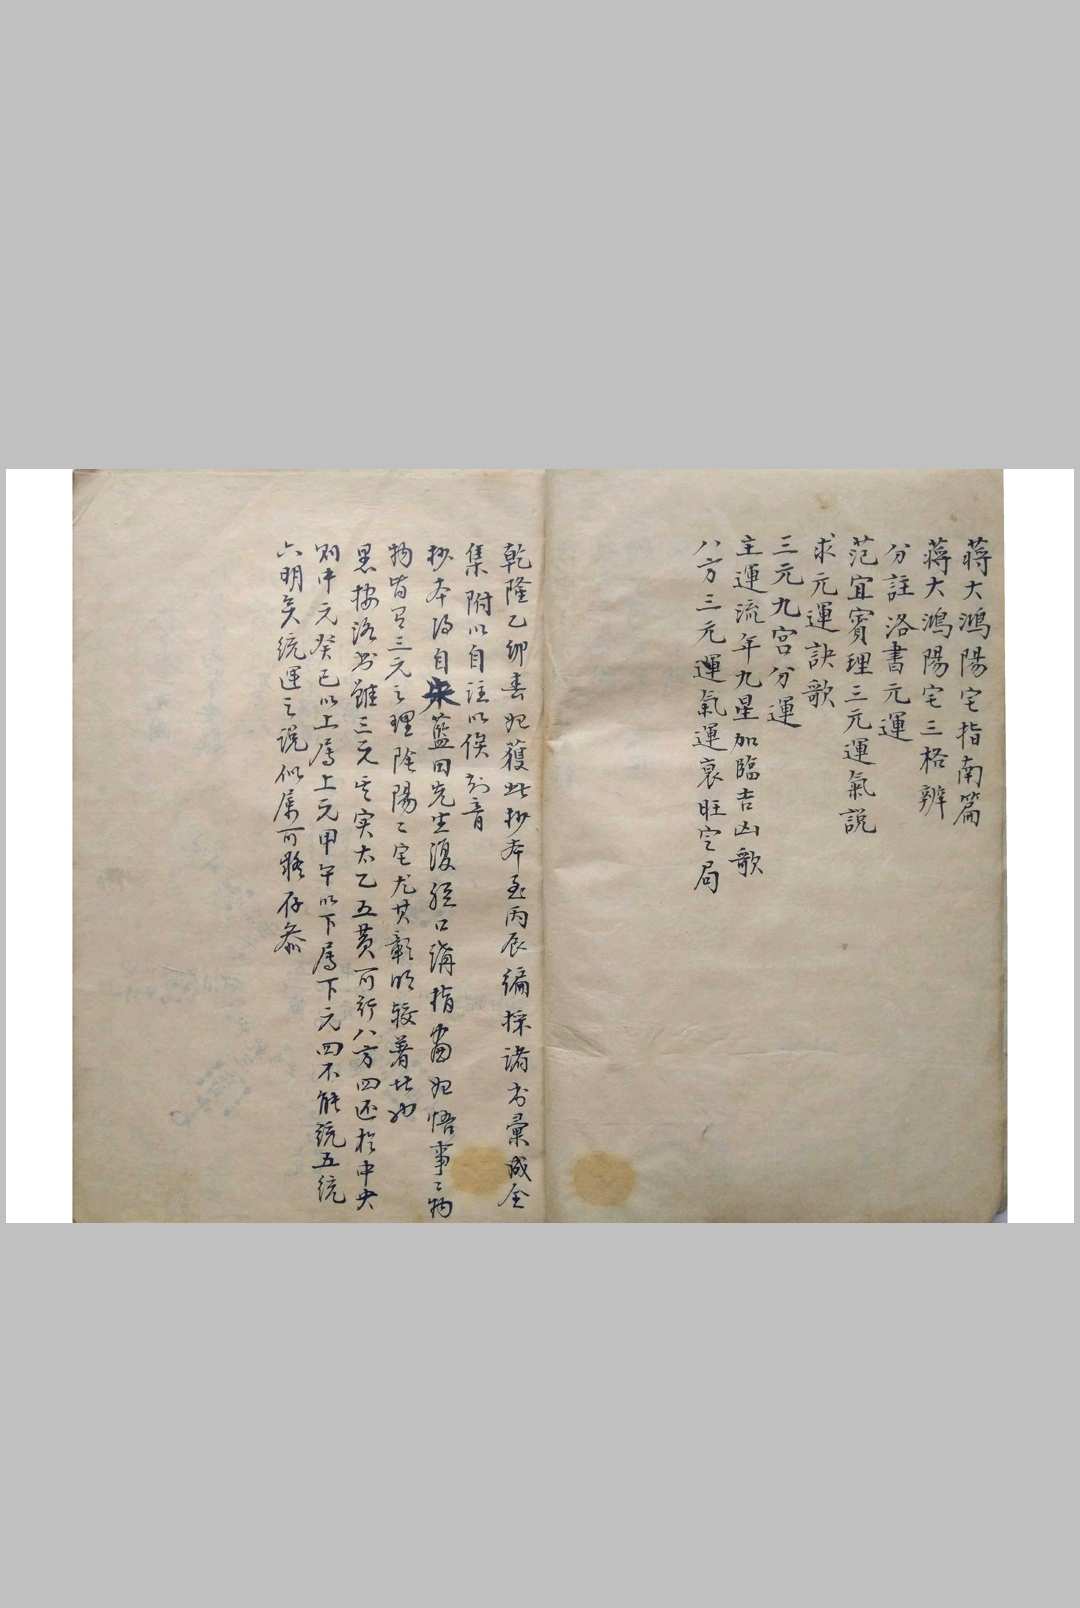 蔣大鴻陽宅指南篇
蔣大鴻陽宅三格辨
分註洛書元運
范宜賓理三元運氣說
求元運訣歌
三元九宮分運
主運流年九星加臨吉凶歌
八方三元運氣運衰旺定局
乾隆乙卯春始獲此抄本至丙辰編採諸書彙成全
集附以自註以俟知音
抄本得自朱藍田先生復經口講指畫始悟事〻物
物皆有三元之理陰陽二宅尤其彰明較著者也
愚按洛書雖三元其实太乙五黃所行八方四还於中央
則中元癸巳以上屬上元甲午以下屬下元四不能統五統
六明矣統運之說似屬可疑存叅